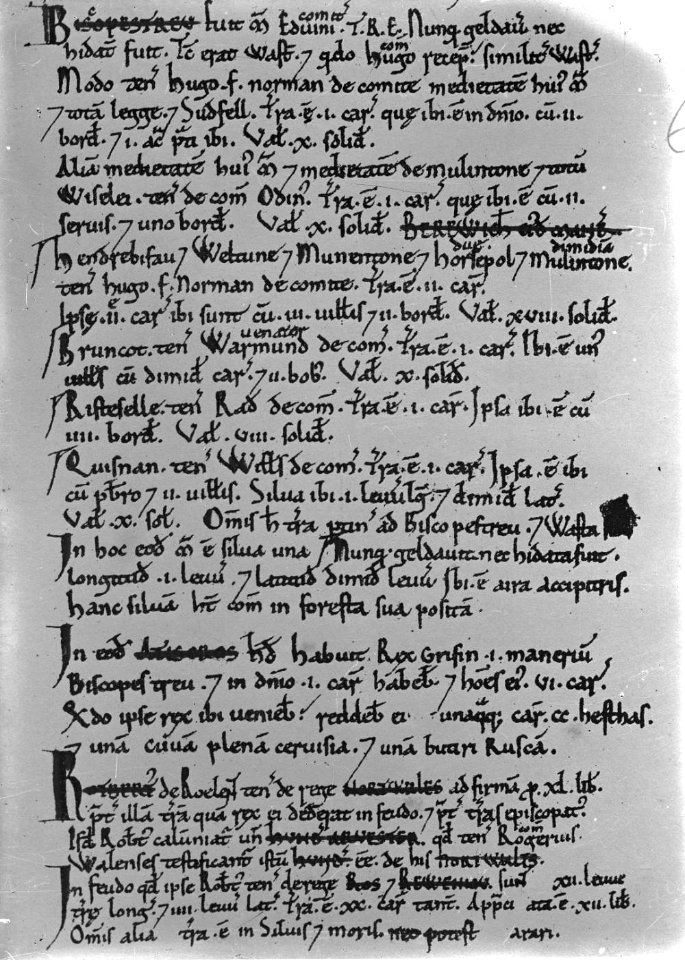 BISCOPESTREU fuit M̄ Eduini comit̃. T.R.E. Nunq̃ geldau' nec
hidat̃ fuit. Tc̄ erat wast̃. ⁊ q̃do hugo com̃ recep̃. similit̃ wast̃.
Modo ten' Hugo.f. norman de comite medietatē hui' M̄
⁊ totā legge.⁊ Sudfell. Tr̃a.ē.i. car'. quę ibi.ē in dn̄io. cū.ii.
bord̃. ⁊ i. ac̃ p̃ti ibi. Val̃.x. solid̃.
Aliā medietatē hui' M̄ ⁊ medietatē de mulintone ⁊ totū
Wiselei. ten' de com̃ Odin'. Tr̃a.ē.i. car' que ibi.ē cū.ii.
seruis. ⁊ uno bord̃. Val̃ .x. solid̃. BEREWICH M̄
Hendrebifau ⁊ Weltune ⁊ Munentone ⁊ horsepol due ⁊ mulintone dimidia.
ten' hugo.f. Norman de comite. Tr̃a.ē.ii. car'.
Ipsę.ii. car' ibi sunt cū.iii. uillis ⁊ ii. bord̃. Val̃. xviii. solid̃.
Bruncot. ten' Warmund uenator de com̃. Tr̃a.ē.i. car'. Ibi.ē un'
uill's cū dimid̃ car'. ⁊ ii. bob'. Val̃. x. solid̃.
Risteselle. ten' Rad̃ de com̃. Tr̃a.ē.i. car'. Ipsa ibi.ē cū
iiii. bord̃. Val̃. viii. solid̃.
Quisnan. ten' Will's de com̃. Tr̃a.ē.i. car'. Ipsa.ē ibi
cū pb̃ro ⁊ ii. uillis. Silua ibi.i. leuu' lg̃. ⁊ dimid̃ lat̃.
Val̃.x. sol̃. Om̄is h̄ tr̃a ptin' ad Biscopestreu. ⁊ Wasta
In hoc eod̃ M̄ ē silua una Nunq̃ geldauit nec hidata fuit.
longitud̃ .i. leuu'. ⁊ latitud̃ dimid̃ leuu'. Ibi.ē aira accipitris.
hanc siluā ht̃ com̃ in foresta sua positā.
In eod̃ ATISCROS hd̃ habuit Rex Grifin .i. maneriū
Biscopestreu. ⁊ in dn̄io .i. car' habeb̃. ⁊ hoēs ei'. vi. car'.
Q̃do ipse rex ibi uenieb̃. reddeb̃ ei unaq̃q; car'. cc. hesthas.
⁊ unā cuuā plenā ceruisia. ⁊ unā butiri Ruscā.
ROTBERT' de Roelent ten' de rege NORTWALES ad firmā p̃. xl. lib̃.
p̃t' illā tr̃ā quā rex ei dederat in feudo. ⁊ p̃t' tr̃as episcopat'.
Isd̃ Rotb̃t' calūniat' un' HUND' ARUESTER. qd̃ ten' Rogerius com̃.
Walenses testificant' istū HUND'. ēē. de his NORTWALIS.
In feudo qd̃ ipse Rotb̃t' ten' de rege Ros ⁊ REWENIOU. sunt xii. leuue
tr̃ę long'. ⁊ iiii. leuu' lat̃. Tr̃a.ē.xx. car' tant̃. App̃ciata.ē.xii. lib̃.
Om̄is alia tr̃a.ē in Siluis ⁊ moris. nec potest arari.